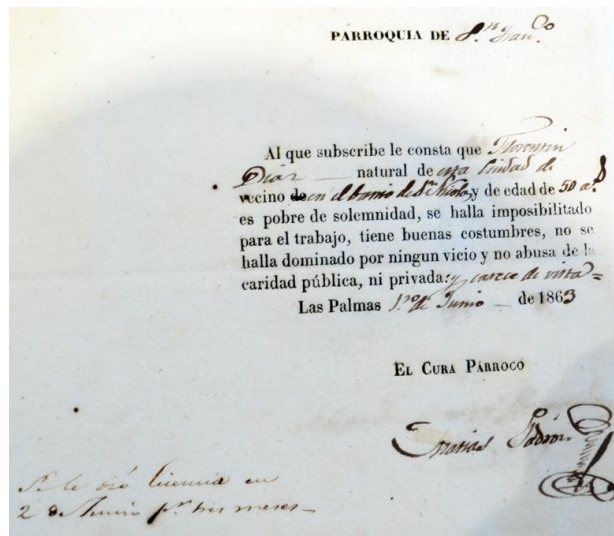 PÁRROQUIA DE S.n Fran.co
Al que subscribe le consta que Florentin
Diaz natural de esta Ciudad
vecino de en el barrio de y de edad de 50 a.s
es pobre de solemnidad, se halla imposibilitado
para el trabajo, tiene buenas costumbres, no se
halla dominado por ningun vicio y no abusa de la
caridad pública, ni privada: y carece de vista=
Las Palmas 1.ro de Junio de 1863
EL CURA PÁRROCO
Matias Padron
Se le dió licencia en
2 de Junio p.r tres meses